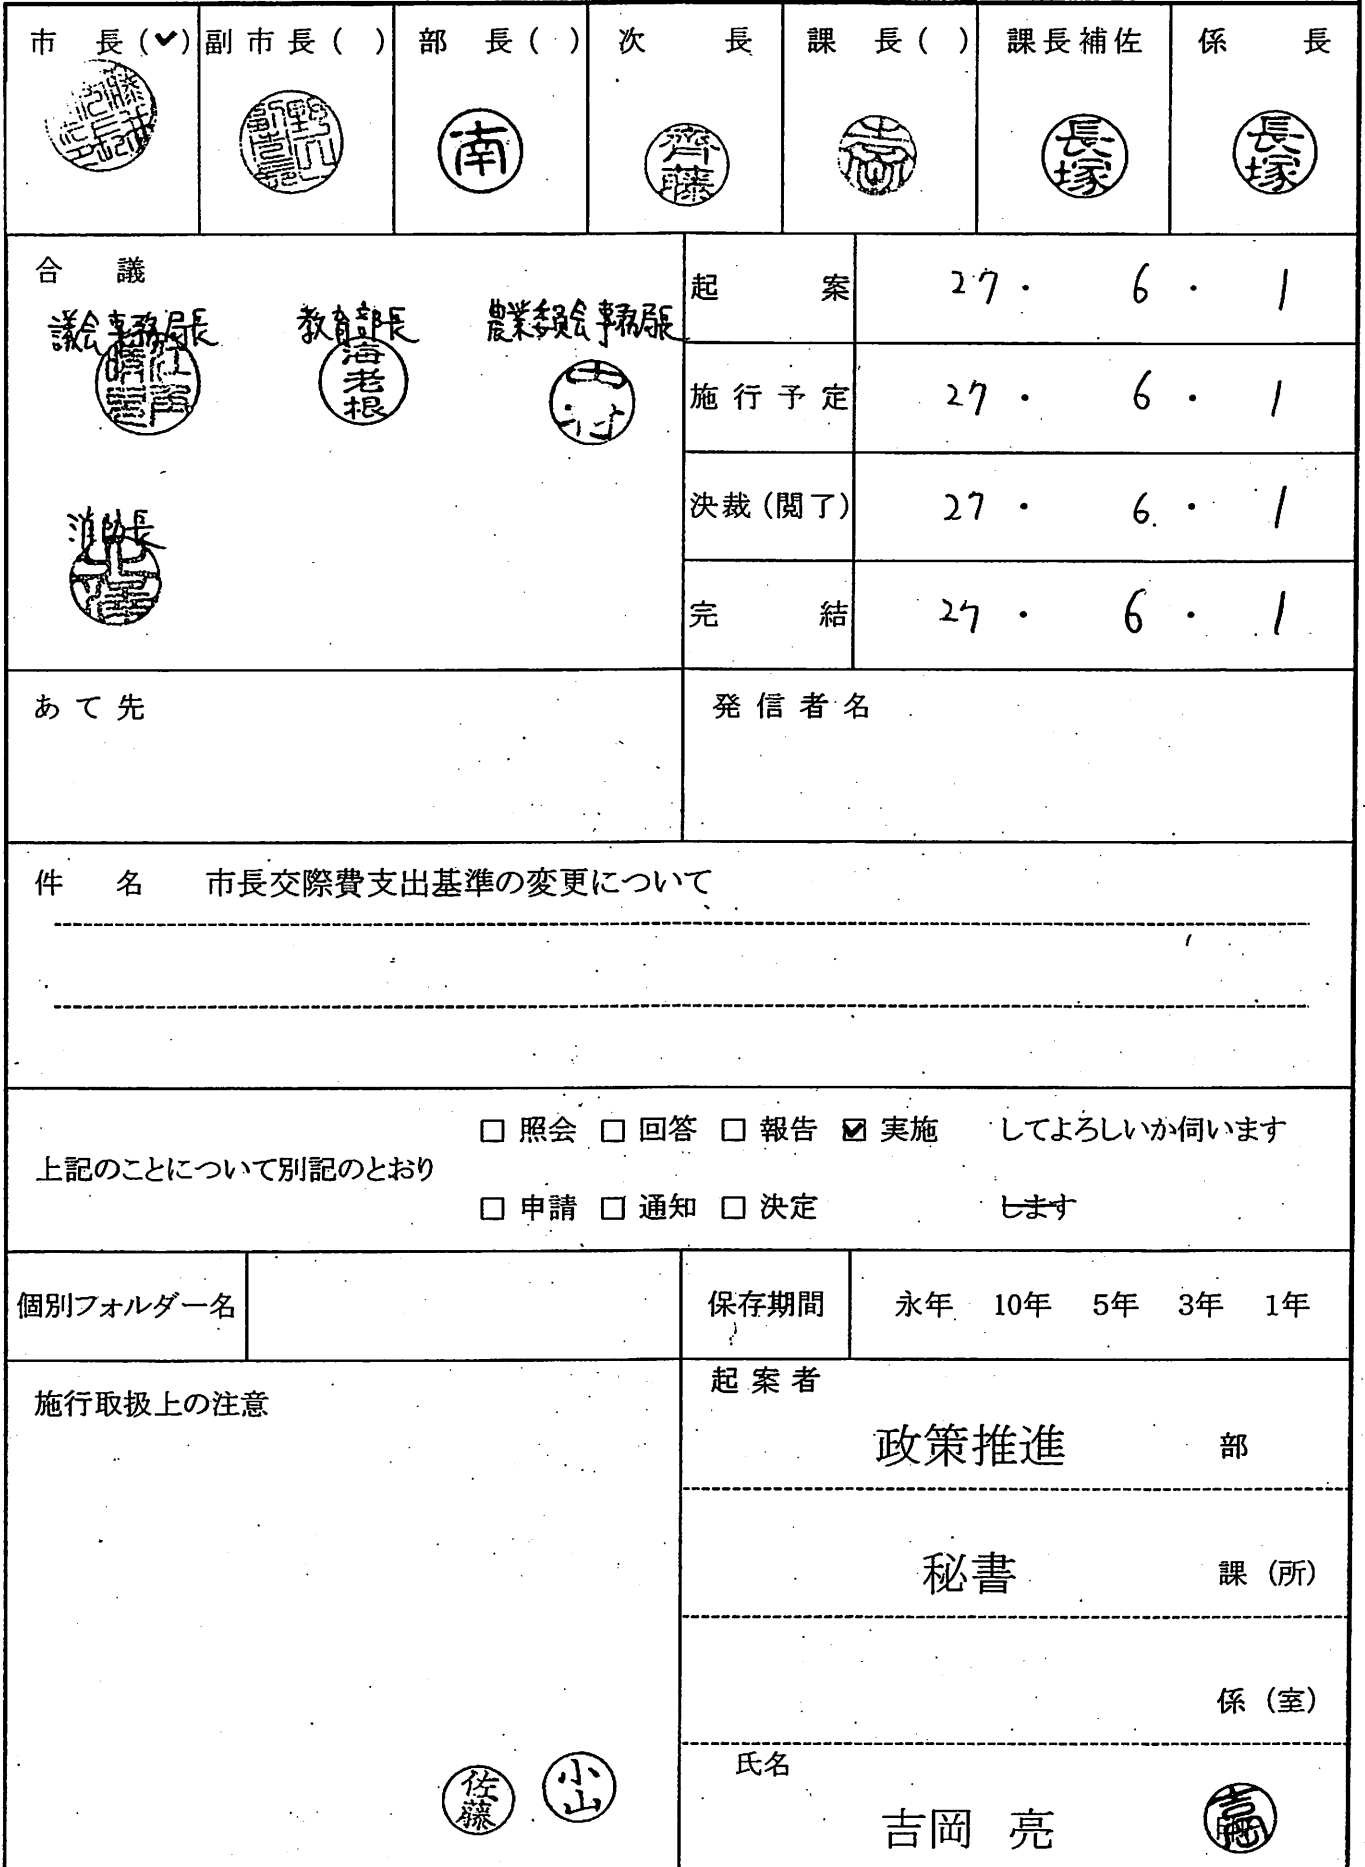 市長(✔) 副市長( ) 部長( ) 次長 課長( ) 課長補佐 係長
南 齊藤 長塚 長塚
合議
議会事務局長 教育部長 農業委員会事務局長
海老根
消防長
起案 27・6・1
施行予定 27・6・1
決裁(閲了) 27・6・1
完結 27・6・1
あて先 発信者名
件名 市長交際費支出基準の変更について
□ 照会 □ 回答 □ 報告 ☑ 実施 してよろしいか伺います
上記のことについて別記のとおり
□ 申請 □ 通知 □ 決定 します
個別フォルダー名 保存期間 永年 10年 5年 3年 1年
施行取扱上の注意
佐藤 小山
起案者
政策推進 部
秘書 課(所)
係(室)
氏名
吉岡 亮 吉岡